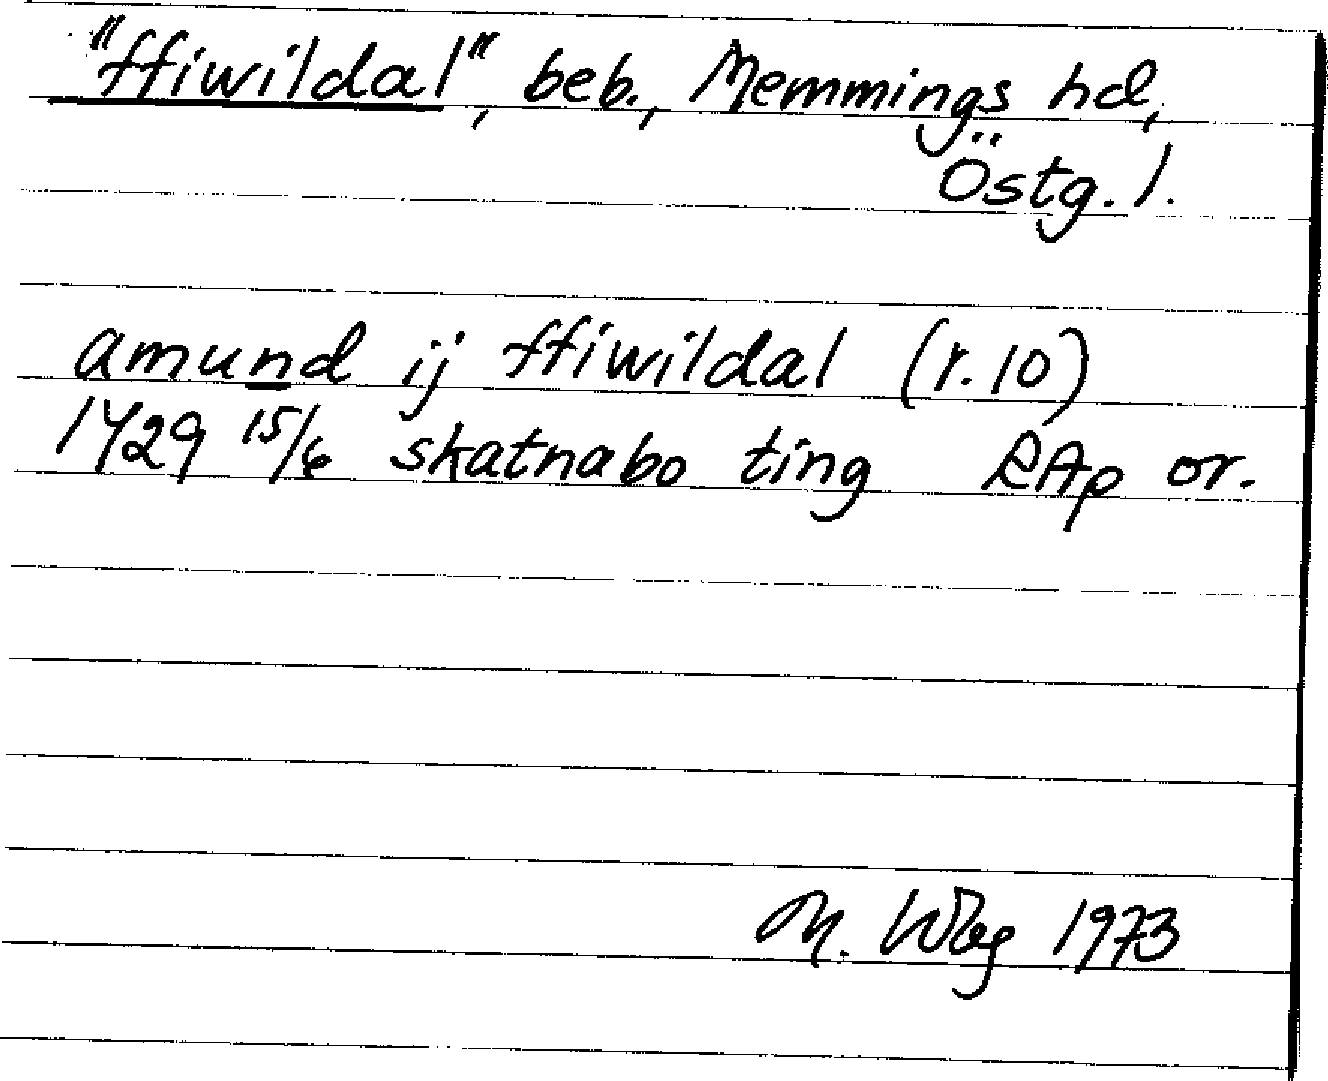 "ffiwildal", beb., Memmings hd,
Östg. l.
amund ij ffiwildal (r. 10)
1429 15/6 skatnabo ting RAp or.
M. Wbg 1973